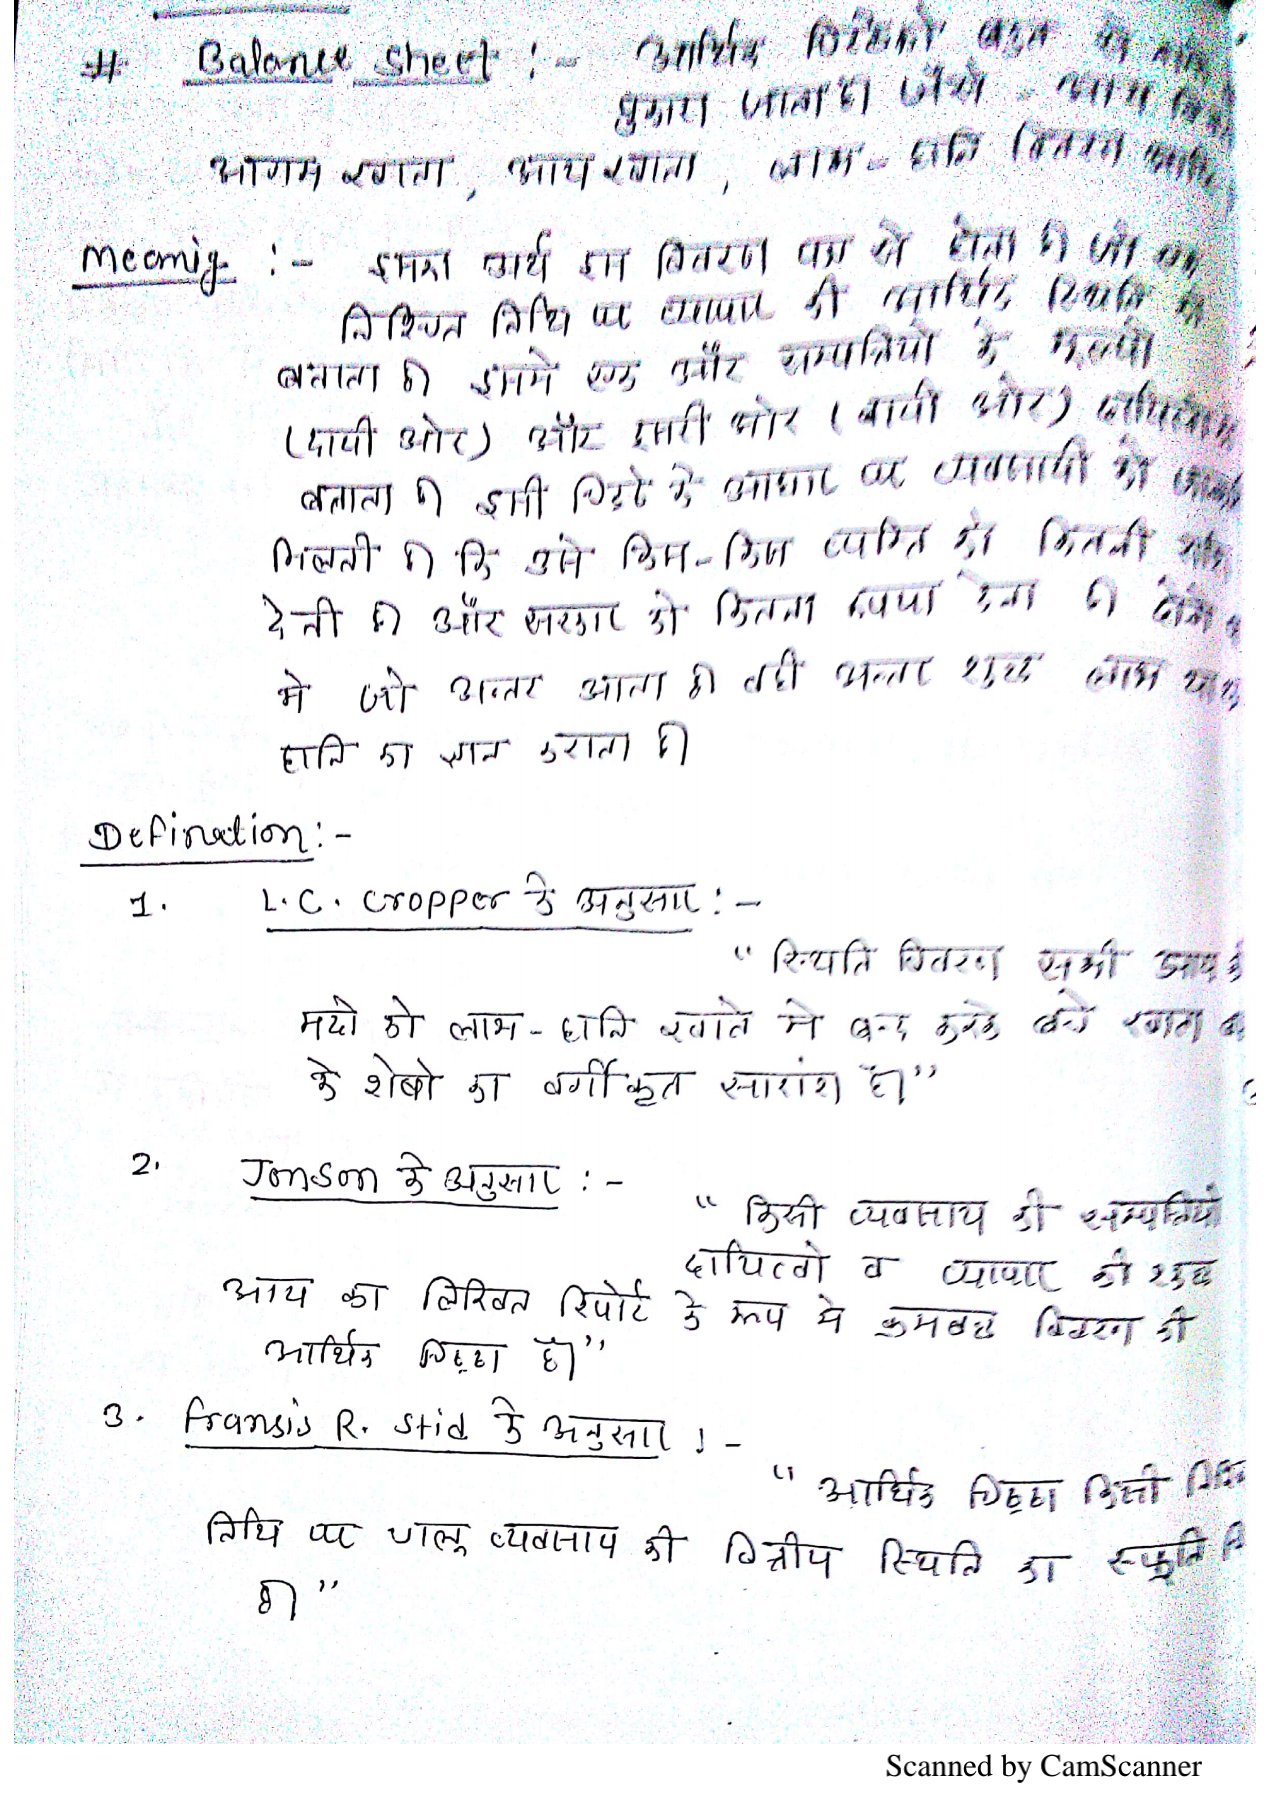 # Balance sheet :- आर्थिक चिट्ठे को बहुत से
पुकारा जाता है। जैसे -
आगम खाता, आय खाता, लाभ-हानि विवरण
Meanig :- इसका अर्थ इस विवरण पत्र से होता है। जो एक
निश्चित तिथि पर व्यापार की आर्थिक स्थिति को
बताता है। इसमे एक और सम्पत्तियो के मूल्यो
(दायी ओर) और दूसरी ओर (बायी ओर)
बताता है। इसी चिट्ठे के आधार पर व्यवसायी को
मिलती है। कि उसे किस-किस व्यक्ति को कितनी
देनी है। और सरकार को कितना रुपया देना है।
मे जो अन्तर आता है। वही अन्तर शुद्ध लाभ
हानि का ज्ञान कराता है।
Defination:-
1. L.C. Cropper के अनुसार :-
“ स्थिति विवरण सभी
मदो को लाभ-हानि खाते मे बन्द करके बचे खाता
के शेषो का वर्गीकृत सारांश है।”
2. Jonson के अनुसार :-
“ किसी व्यवसाय की सम्पत्तियो
दायित्वो व व्यापार की शुद्ध
आय का लिखित रिपोर्ट के रूप मे क्रमबद्ध विवरण ही
आर्थिक चिट्ठा है।”
3. Fransis R. Stid के अनुसार :-
“ आर्थिक चिट्ठा किसी
तिथि पर चालू व्यवसाय की वित्तीय स्थिति का
है।”
Scanned by CamScanner